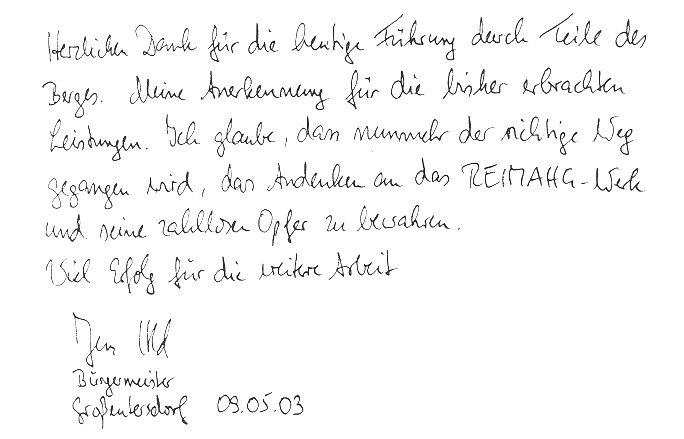 Herzlichen Dank für die heutige Führung durch Teile des
Berges. Meine Anerkennung für die bisher erbrachten
Leistungen. Ich glaube, dass nunmehr der richtige Weg
gegangen wird, das Andenken an das REIMAHG-Werk
und seine zahllosen Opfer zu bewahren.
Viel Erfolg für die weitere Arbeit
Jens
Bürgermeister
Großeutersdorf 09.05.03